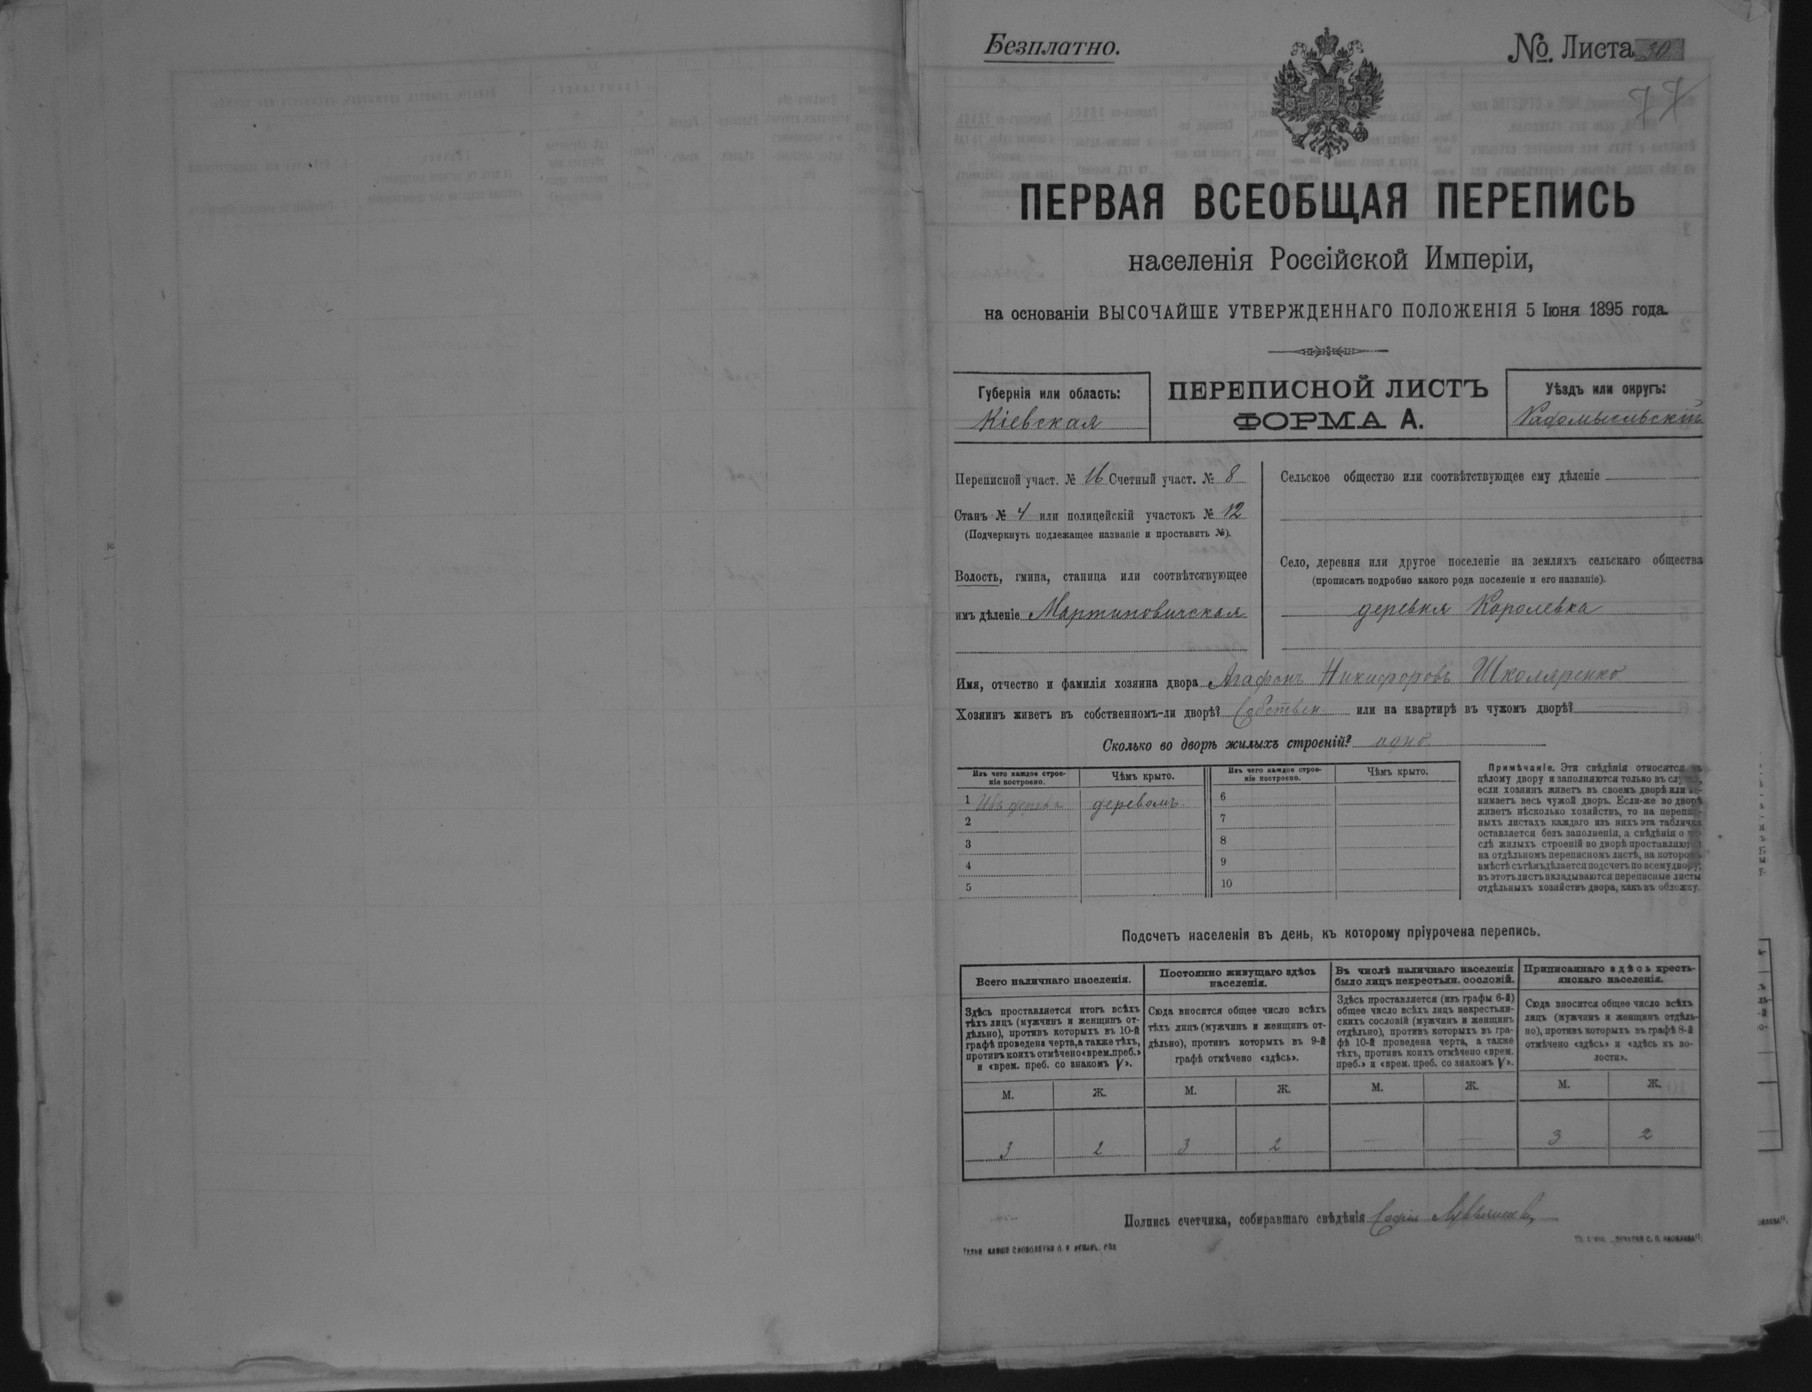 Безплатно.
№. Листа 30
77
ПЕРВАЯ ВСЕОБЩАЯ ПЕРЕПИСЬ
населенія Россійской Имперіи,
на основаніи ВЫСОЧАЙШЕ УТВЕРЖДЕННАГО ПОЛОЖЕНІЯ 5 Іюня 1895 года.
Губернія или область:
Кіевская
ПЕРЕПИСНОЙ ЛИСТЪ
ФОРМА А.
Уѣздъ или округъ:
Радомысльскій
Переписной участ. № 16 Счетный участ. № 8
Станъ № 4 или полицейскій участокъ № 12
(Подчеркнуть подлежащее названіе и проставить №).
Волость, гмина, станица или соотвѣтствующее
имъ дѣленіе Мартиновичская
Сельское общество или соотвѣтствующее ему дѣленіе
Село, деревня или другое поселеніе на земляхъ сельскаго общества
(прописать подробно какого рода поселеніе и его названіе).
деревня Королевка
Имя, отчество и фамилія хозяина двора Агафонъ Никифоровъ Школяренко
Хозяинъ живетъ въ собственномъ-ли дворѣ? Собствен или на квартирѣ въ чужомъ дворѣ?
Сколько во дворѣ жилыхъ строеній? одно.
Изъ чего каждое строеніе построено.
Чѣмъ крыто.
Изъ чего каждое строеніе построено.
Чѣмъ крыто.
1 Изъ дерева деревомъ.
2
3
4
5
6
7
8
9
10
Примѣчаніе. Эти свѣдѣнія относятся къ
цѣлому двору и заполняются только въ случаѣ,
если хозяинъ живетъ въ своемъ дворѣ или за-
нимаетъ весь чужой дворъ. Если-же во дворѣ
живетъ нѣсколько хозяйствъ, то на перепис-
ныхъ листахъ каждаго изъ нихъ эта табличка
оставляется безъ заполненія, а свѣдѣнія о чи-
слѣ жилыхъ строеній во дворѣ проставляются
на отдѣльномъ переписномъ листѣ, на которомъ
вмѣстѣ съ тѣмъ дѣлается подсчетъ по всему двору;
въ этотъ листъ вкладываются переписные листы
отдѣльныхъ хозяйствъ двора, какъ въ обложку.
Подсчетъ населенія въ день, къ которому пріурочена перепись.
Всего наличнаго населенія.
Здѣсь проставляется итогъ всѣхъ
тѣхъ лицъ (мужчинъ и женщинъ от-
дѣльно), противъ которыхъ въ 10-й
графѣ проведена черта, а также тѣхъ,
противъ коихъ отмѣчено «врем. преб.»
и «врем. преб. со знакомъ V».
Постоянно живущаго здѣсь
населенія.
Сюда вносится общее число всѣхъ
тѣхъ лицъ (мужчинъ и женщинъ от-
дѣльно), противъ которыхъ въ 9-й
графѣ отмѣчено «здѣсь».
Въ числѣ наличнаго населенія
было лицъ некрестьян. сословій.
Здѣсь проставляется (изъ графы 6-й)
общее число всѣхъ лицъ некрестьян-
скихъ сословій (мужчинъ и женщинъ
отдѣльно), противъ которыхъ въ гра-
фѣ 10-й проведена черта, а также
тѣхъ, противъ коихъ отмѣчено «врем.
преб.» и «врем. преб. со знакомъ V».
Приписаннаго здѣсь кресть-
янскаго населенія.
Сюда вносится общее число всѣхъ
лицъ (мужчинъ и женщинъ отдѣль-
но), противъ которыхъ въ графѣ 8-й
отмѣчено «здѣсь» и «здѣсь къ во-
лости».
М. Ж. М. Ж. М. Ж. М. Ж.
3 2 3 2 — — 3 2
Подпись счетчика, собиравшаго свѣдѣнія